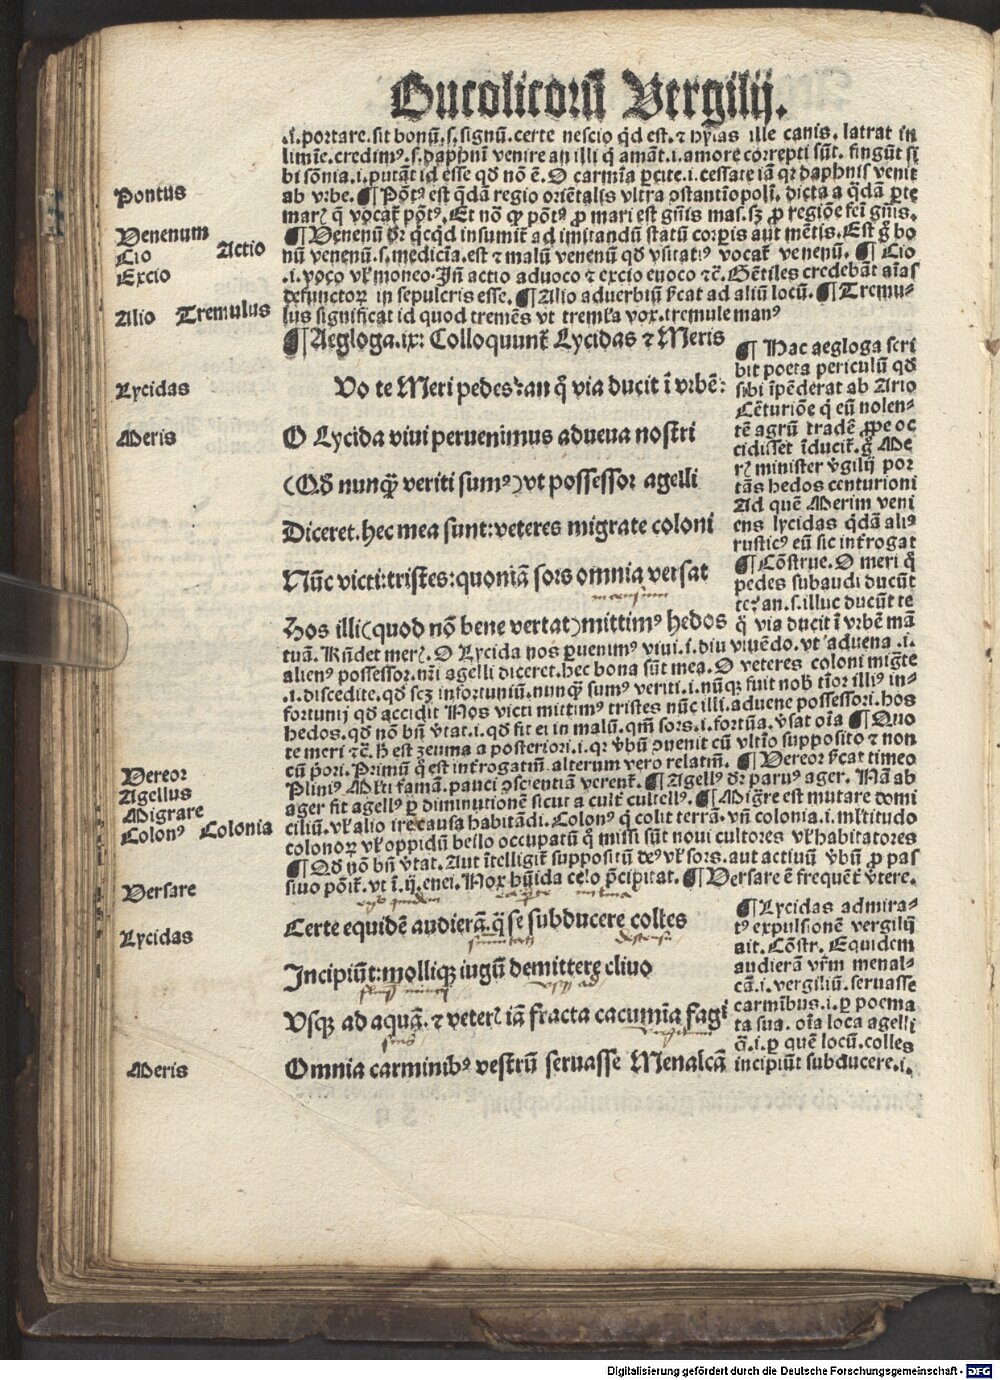 Bucolicorū Vergilij.
.i. portare. sit bonū. s. signū. certe nescio qd est. ⁊ hylas ille canis. latrat in
limīe. credimꝰ. s. daphnī venire an illi q̄ amāt. i. amore correpti sūt. fingūt si
bi sōnia. i. putāt id esse qd nō ē. O carmīa ꝑcite. i. cessate iā qꝛ daphnis venit
Pontus ab vrbe. ¶ Pōtꝰ est q̄dā regio oriētalis vltra ostantiopolī. dicta a q̄dā ꝑte
marꝭ q̄ vocat̄ pōtꝰ. Et nō qꝫ pōtꝰ ꝓ mari est gn̄is mas. sꝫ ꝓ regiōe fei gn̄is.
Venenum ¶ Venenū dꝛ qͥcqd insumit̄ ad imitandū statū corꝑis aut mētis. Est g̊ bo
Cio Actio nū venenū. s. medicīa. est ⁊ malū venenū qd vsitatiꝰ vocat̄ venenū. ¶ Cio
Excio .i. voco vl̓ moneo. Jn̄ actio aduoco ⁊ excio euoco ⁊c̄. Gētiles credebāt aīas
defunctoꝝ in sepulcris esse. ¶ Alio aduerbiū s̄cat ad aliū locū. ¶ Tremu-
Alio Tremulus lus significat id quod tremēs vt treml̓a vox. tremule manꝰ
¶ Aegloga .ix: Colloquunt̄ Lycidas ⁊ Meris
Lycidas Vo te Meri pedes? an q̄ via ducit ī vrbē:
Meris O Lycida viui peruenimus aduena nostri
(Qd nunqꝫ veriti sumꝰ) vt possessor agelli
Diceret. hec mea sunt: veteres migrate coloni
Nūc victi: tristes: quoniā sors omnia versat
Hos illi (quod nō bene vertat) mittimꝰ hedos
¶ Hac aegloga scri
bit poeta periculū qd
sibi īpēderat ab Ario
Cēturiōe q̄ eū nolen-
tē agrū tradē ꝓpe oc
cidisset īducit̄. g̊ Me
rꝭ minister v̓gilij por
tās hedos centurioni
Ad quē Merim veni
ens lycidas q̄dā aliꝰ
rusticꝰ eū sic int̓rogat
¶ Cōstrue. O meri q̊
pedes subaudi ducūt
te? an. s. illuc ducūt te
q̄ via ducit ī vrbē mā
tuā. Rn̄det merꝭ. O Lycida nos ꝑuenimꝰ viui. i. diu viuēdo. vt aduena .i.
alienꝰ possessor. nr̄i agelli diceret. hec bona sūt mea. O veteres coloni migr̄te
.i. discedite. qd scꝫ infortuniū. nunqꝫ sumꝰ veriti. i. nūqꝫ fuit nob̄ tīor illiꝰ in-
fortunij qd accidit Nos victi mittimꝰ tristes nūc illi. aduene possessori. hos
hedos. qd nō bn̄ v̓tat. i. qd fit ei in malū. qm̄ sors. i. fortūa. v̓sat oīa ¶ Quo
te meri ⁊c̄. h̄ est zeuma a posteriori. i. qꝛ v̓bū ꝯuenit cū vltīo supposito ⁊ non
cū p̓ori. Primū q̊ est int̓rogatiū alterum vero relatiū. ¶ Vereor s̄cat timeo
Vereor Pliniꝰ Ml̓ti famā. pauci ꝯscientiā verent̄. ¶ Agellꝰ dꝛ paruꝰ ager. Nā ab
Agellus ager fit agellꝰ ꝑ diminutionē sicut a cult̄ cultellꝰ. ¶ Migr̄re est mutare domi
Migrare ciliū. vl̓ alio ire causa habitādi. Colonꝰ q̄ colit terrā. vn̄ colonia. i. ml̓titudo
Colonꝰ Colonia colonoꝝ vl̓ oppidū bello occupatū q̊ missi sūt noui cultores vl̓ habitatores
¶ Qd nō bn̄ v̓tat. Aut ītelligit̄ suppositū deꝰ vl̓ sors. aut actiuū v̓bū ꝓ pas
Versare siuo pōit̄. vt ī. ij. enei. Nox hūida celo p̄cipitat. ¶ Versare ē frequēt̓ v̓tere.
Lycidas Certe equidē audierā. q̄ se subducere colles
Incipiūt: molliqꝫ iugū demittere cliuo
Vsqꝫ ad aquā. ⁊ veterꝭ iā fracta cacumīa fagi
Meris Omnia carminibꝰ vestrū seruasse Menalcā
¶ Lycidas admira-
tꝰ expulsionē vergilij
ait. Cōstr. Equidem
audierā vr̄m menal-
cā. i. vergiliū. seruasse
carmībus. i. ꝑ poema
ta sua. oīa loca agelli
q̄. i. ꝑ quē locū. colles
incipiūt subducere. i.
Digitalisierung gefördert durch die Deutsche Forschungsgemeinschaft - DFG